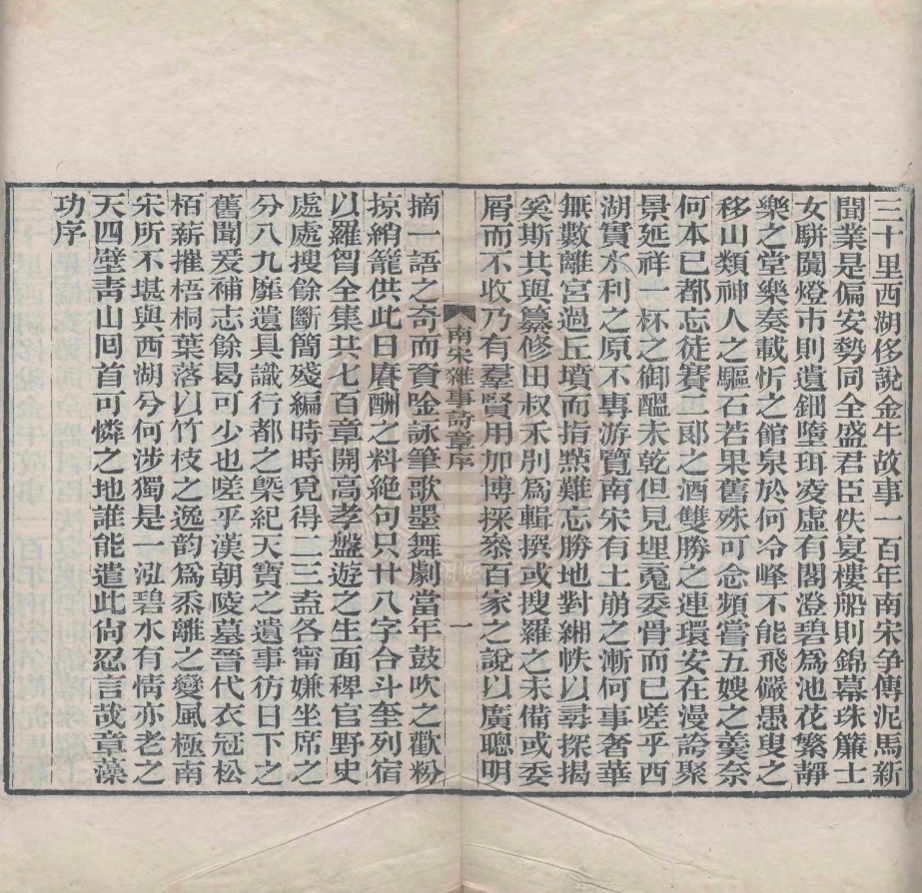 三十里西湖侈說金牛故事一百年南宋爭傳泥馬新
聞業是偏安勢同全盛君臣佚宴樓船則錦幕珠簾士
女駢闐燈市則遺鈿墮珥夌虛有閣澄碧爲池花繁靜
樂之堂樂奏載忻之館泉於何冷峰不能飛儼愚叟之
移山類神人之驅石若果舊殊可念頻嘗五嫂之羹奈
何本已都忘徒賽三郞之酒雙勝之連環安在漫誇聚
景延祥一杯之御醞未乾但見埋䰟委骨而已嗟乎西
湖實水利之原不專游覽南宋有土崩之漸何事奢華
無數離宮過丘墳而指㸃難忘勝地對緗帙以尋探揭
奚斯共與纂修田叔禾別爲輯撰或搜羅之未備或委
屑而不收乃有羣賢用加博採叅百家之說以廣聰明
南宋雜事詩章序
一
摘一語之奇而資唫詠筆歌墨舞劇當年鼓吹之歡粉
掠綃籠供此日賡酬之料絶句只廿八字合斗奎列宿
以羅胷全集共七百章開高孝盤遊之生面稗官野史
處處搜餘斷簡殘編時時覓得二三盍各甯嫌坐席之
分八九靡遺具識行都之槩紀天寶之遺事彷日下之
舊聞爰補志餘曷可少也嗟乎漢朝陵墓晉代衣冠松
栢薪摧梧桐葉落以竹枝之逸韵爲黍離之變風極南
宋所不堪與西湖兮何涉獨是一泓碧水有情亦老之
天四壁靑山囘首可憐之地誰能遣此尙忍言哉章藻
功序